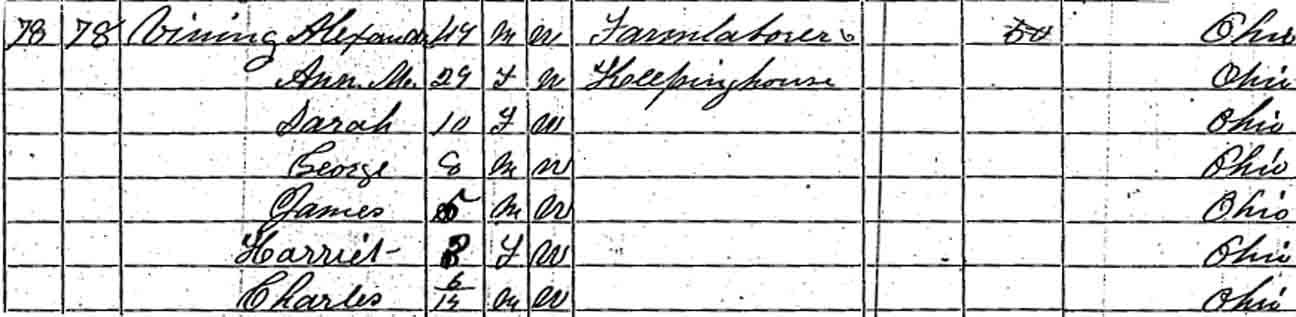 78 78 Vining Alexander M W Farm laborer Ohio
Ann. M. 29 F W Keeping house Ohio
Sarah 10 F W Ohio
George 8 M W Ohio
James 5 M W Ohio
Harriet F W Ohio
Charles 6/12 M W Ohio